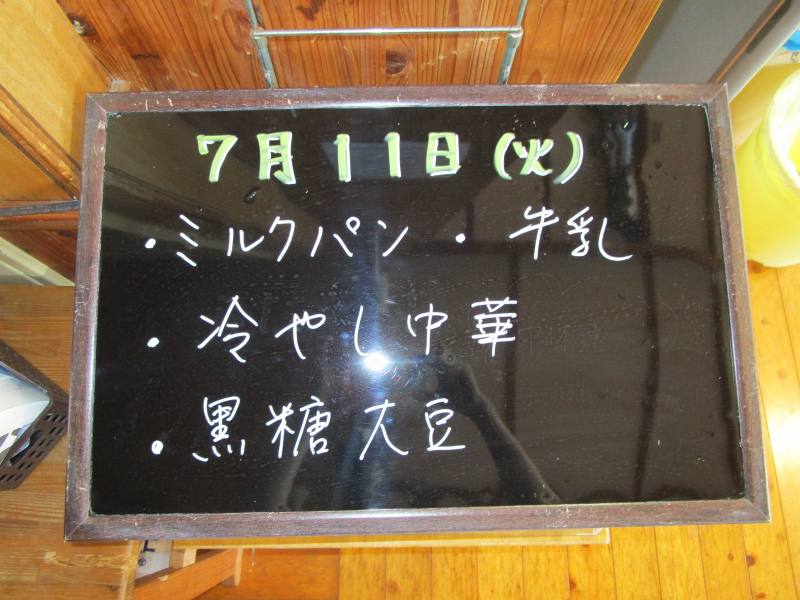 7月11日(火)
・ミルクパン ・ 牛乳
・冷やし中華
・黒糖大豆